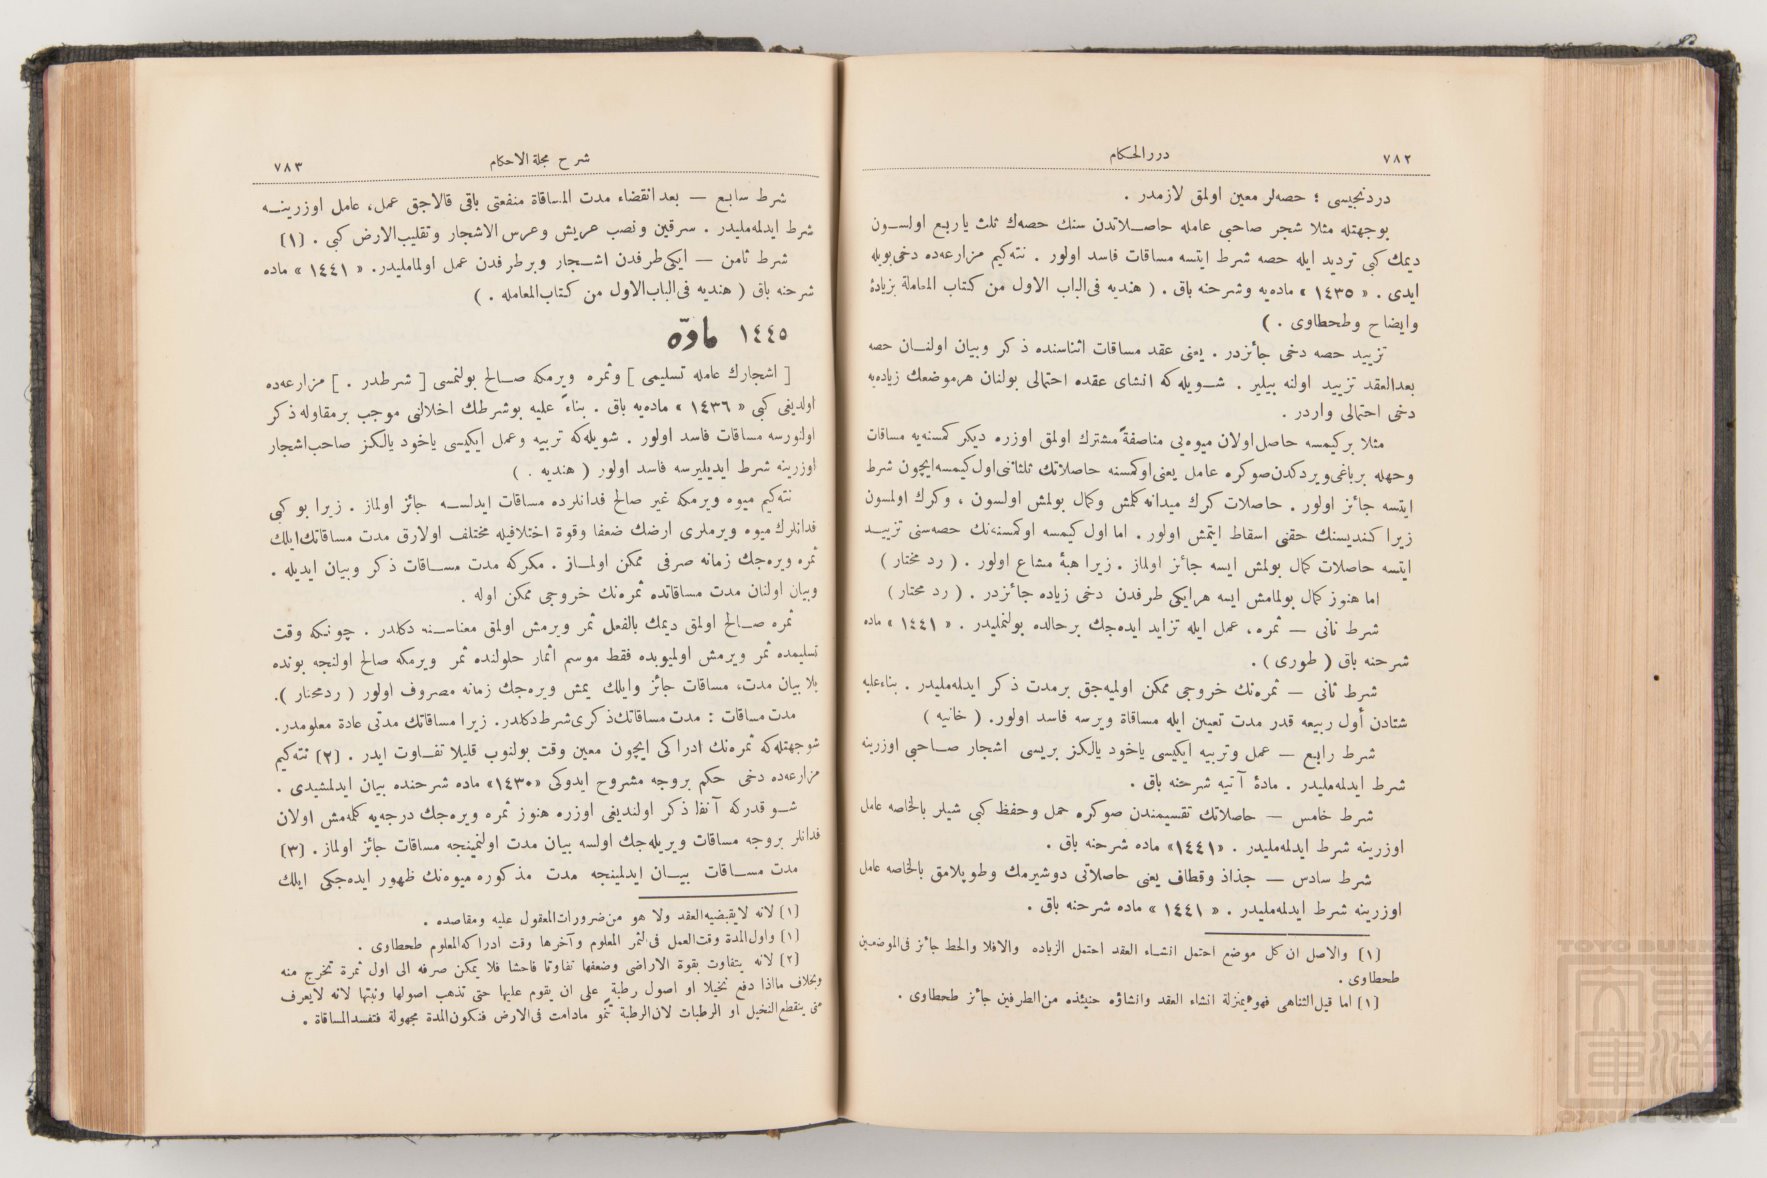 ٧٨٢
دررالحكام
دردنجيسى ؛ حصه‌لر معين اولمق لازمدر .
بوجهتله مثلا شجر صاحبى عامله حاصلاتدن سنك حصه‌ك ثلث ياربع اولسون
ديمك كبى ترديد ايله حصه شرط ايتسه مساقات فاسد اولور . نته‌كيم مزارعه‌ده دخى بويله
ايدى . « ١٤٣٥ » ماده‌يه وشرحنه باق . ( هنديه فى‌الباب الاول من كتاب المعاملة بزيادة
وايضاح وطحطاوى . )
تزييد حصه دخى جائزدر . يعنى عقد مساقات اثناسنده ذكر وبيان اولنان حصه
بعدالعقد تزييد اولنه بيلير . شويله‌كه انشاى عقده احتمالى بولنان هرموضعك زياده‌يه
دخى احتمالى واردر .
مثلا بركيمسه حاصل‌اولان ميوه‌يى مناصفةً مشترك اولمق اوزره ديكر كمسنه‌يه مساقات
وجهله برباغى‌ويردكدن‌صوكره عامل يعنى‌اوكمسنه حاصلاتك ثلثاننى‌اول‌كيمسه‌ايچون شرط
ايتسه جائز اولور . حاصلات كرك ميدانه‌كلمش وكمال بولمش اولسون ، وكرك اولمسون
زيرا كنديسنك حقنى اسقاط ايتمش اولور . اما اول كيمسه اوكمسنه‌نك حصه‌سنى تزييد
ايتسه حاصلات كمال بولمش ايسه جائز اولماز . زيرا هبهٔ مشاع اولور . ( رد مختار )
اما هنوز كمال بولمامش ايسه هرايكى طرفدن دخى زياده جائزدر . ( رد مختار )
شرط ثانى — ثمره ، عمل ايله تزايد ايده‌جك برحالده بولنمليدر . « ١٤٤١ » ماده
شرحنه باق ( طورى ) .
شرط ثانى — ثمره‌نك خروجى ممكن اوليه‌جق برمدت ذكر ايدلمه‌مليدر . بناءعليه
شتادن أول ربيعه قدر مدت تعيين ايله مساقاة ويرسه فاسد اولور. ( خانيه )
شرط رابع — عمل وتربيه ايكيسى ياخود يالكز بريسى اشجار صاحبى اوزرينه
شرط ايدلمه‌مليدر . مادهٔ آتيه شرحنه باق .
شرط خامس — حاصلاتك تقسيمندن صوكره حمل وحفظ كبى شيلر بالخاصه عامل
اوزرينه شرط ايدلمه‌مليدر . «١٤٤١» ماده شرحنه باق .
شرط سادس — جذاذ وقطاف يعنى حاصلاتى دوشيرمك وطوپلامق بالخاصه عامل
اوزرينه شرط ايدلمه‌مليدر . « ١٤٤١ » ماده شرحنه باق .
(١) والاصل ان كل موضع احتمل انشاء العقد احتمل الزياده والافلا والحط جائز فى‌الموضعين
طحطاوى.
(١) اما قبل‌التناهى فهو بمنزلة انشاء العقد وانشاؤه حينئذه من‌الطرفين جائز طحطاوى .
شرح مجلة الاحكام
٧٨٣
شرط سابع — بعد انقضاء مدت المساقاة منفعتى باقى قالاجق عمل، عامل اوزرينه
شرط ايدلمه‌مليدر . سرقين ونصب عريش وغرس الاشجار وتقليب‌الارض كبى . (١)
شرط ثامن — ايكى‌طرفدن اشجار وبرطرفدن عمل اولمامليدر. « ١٤٤١ » ماده
شرحنه باق ( هنديه فى‌الباب‌الاول من كتاب‌المعامله . )
١٤٤٥ مادّه
[ اشجارك عامله تسليمى ] وثمره ويرمكه صالح بولنمسى [ شرطدر . ] مزارعه‌ده
اولديغى كبى « ١٤٣٦ » ماده‌يه باق . بناءً عليه بوشرطك اخلالنى موجب برمقاوله ذكر
اولنورسه مساقات فاسد اولور . شويله‌كه تربيه وعمل ايكيسى ياخود يالكز صاحب‌اشجار
اوزرينه شرط ايديليرسه فاسد اولور ( هنديه . )
نته‌كيم ميوه ويرمكه غير صالح فدانلرده مساقات ايدلسه جائز اولماز . زيرا بو كبى
فدانلرك ميوه ويرملرى ارضك ضعفا وقوة اختلافيله مختلف اولارق مدت مساقاتك‌ايلك
ثمره ويره‌جك زمانه صرفى ممكن اولماز . مكركه مدت مساقات ذكر وبيان ايديله .
وبيان اولنان مدت مساقاتده ثمره‌نك خروجى ممكن اوله .
ثمره صالح اولمق ديمك بالفعل ثمر ويرمش اولمق معناسنه دكلدر . چونكه وقت
تسليمده ثمر ويرمش اولميوبده فقط موسم اثمار حلولنده ثمر ويرمكه صالح اولنجه بونده
بلا بيان مدت، مساقات جائز وايلك يمش ويره‌جك زمانه مصروف اولور ( ردمختار ).
مدت مساقات : مدت مساقاتك‌ذكرى‌شرط‌دكلدر. زيرا مساقاتك مدتى عادة معلومدر.
شوجهتله‌كه ثمره‌نك ادراكى ايچون معين وقت بولنوب قليلا تفاوت ايدر . (٢) نته‌كيم
مزارعه‌ده دخى حكم بروجه مشروح ايدوكى «١٤٣٠» ماده شرحنده بيان ايدلمشيدى .
شو قدركه آنفا ذكر اولنديغى اوزره هنوز ثمره ويره‌جك درجه‌يه كلمه‌مش اولان
فدانلر بروجه مساقات ويريله‌جك اولسه بيان مدت اولنمينجه مساقات جائز اولماز . (٣)
مدت مساقات بيان ايدلمينجه مدت مذكوره ميوه‌نك ظهور ايده‌جكى ايلك
(١) لانه لايقتضيه‌العقد ولا هو من‌ضرورات‌المعقول عليه ومقاصده .
(١) واول‌المدة وقت‌العمل فى‌الثمر المعلوم وآخرها وقت ادراكه‌المعلوم طحطاوى .
(٢) لانه يتفاوت بقوة الاراضى وضعفها تفاوتا فاحشا فلا يمكن صرفه الى اول ثمرة تخرج منه
وبخلاف مااذا دفع نخيلا او اصول رطبة على ان يقوم عليها حتى تذهب اصولها ونبتها لانه لايعرف
متى ينقطع‌النخيل او الرطبات لان‌الرطبة تنمو مادامت فى‌الارض فتكون‌المدة مجهولة فتفسدالمساقاة .
TOYO BUNKO
東洋
文庫
TOYO BUNKO